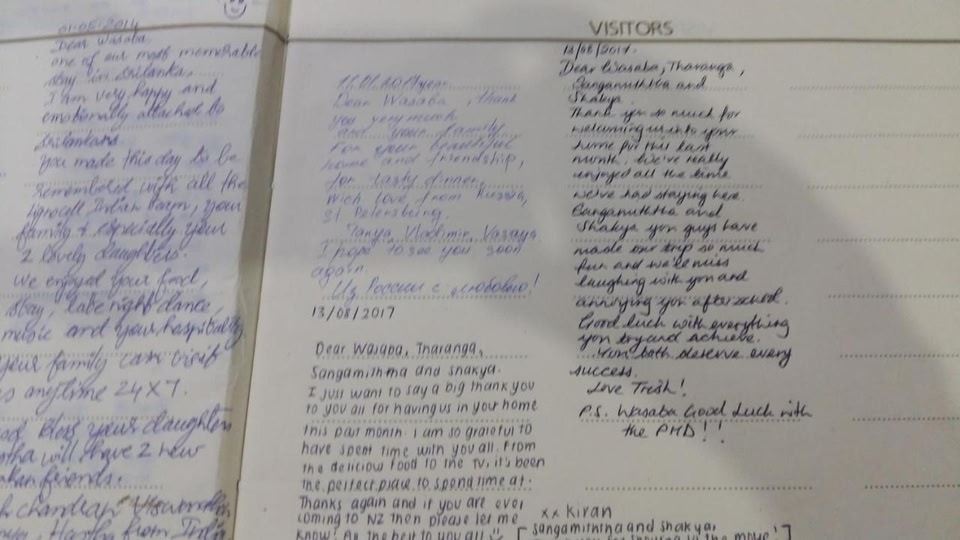 01-05-2014
Dear Wasaba.
one of our most memorable
stay in Srilanka.
I am very happy and
emotionally attached to
Srilankans.
You made this day to be
remembered with all the
Indian team, your
family & especially your
2 lovely daughters.
We enjoyed your food,
stay, late night dance,
music and your hospitality
your family can visit
us anytime 24x7.
God bless your daughters
will have 2 new
friends.
from India
VISITORS
11.01.2017year.
Dear Wasaba, thank
you very much
and your family
for your beautiful
home and friendship,
for tasty dinner.
With love from Russia,
St Petersburg.
Tanya, Vladimir, Vasaya
I hope to see you soon
again.
Из России с любовью!
13/08/2017
Dear Wasaba, Tharanga,
Sangamithma and shakya.
I just want to say a big thank you
to you all for having us in your home
this past month. I am so grateful to
have spent time with you all. From
the delicious food to the tv, it's been
the perfect place to spend time at.
Thanks again and if you are ever
coming to NZ then please let me
know! All the best to you all
13/08/2017.
Dear Wasaba, Tharanga,
and
Shakya.
Thank you so much for
welcoming us into your
home for this last
month. We've really
enjoyed all the time
we've had staying here.
and
Shakya you guys have
made our trip so much
fun and we'll miss
laughing with you and
annoying you after school.
Good luck with everything
you try and achieve.
You both deserve every
success.
Love Trish!
P.S. Wasaba Good Luck with
the PHD!!
xx Kiran
[Sangamithtna and shakya,
]